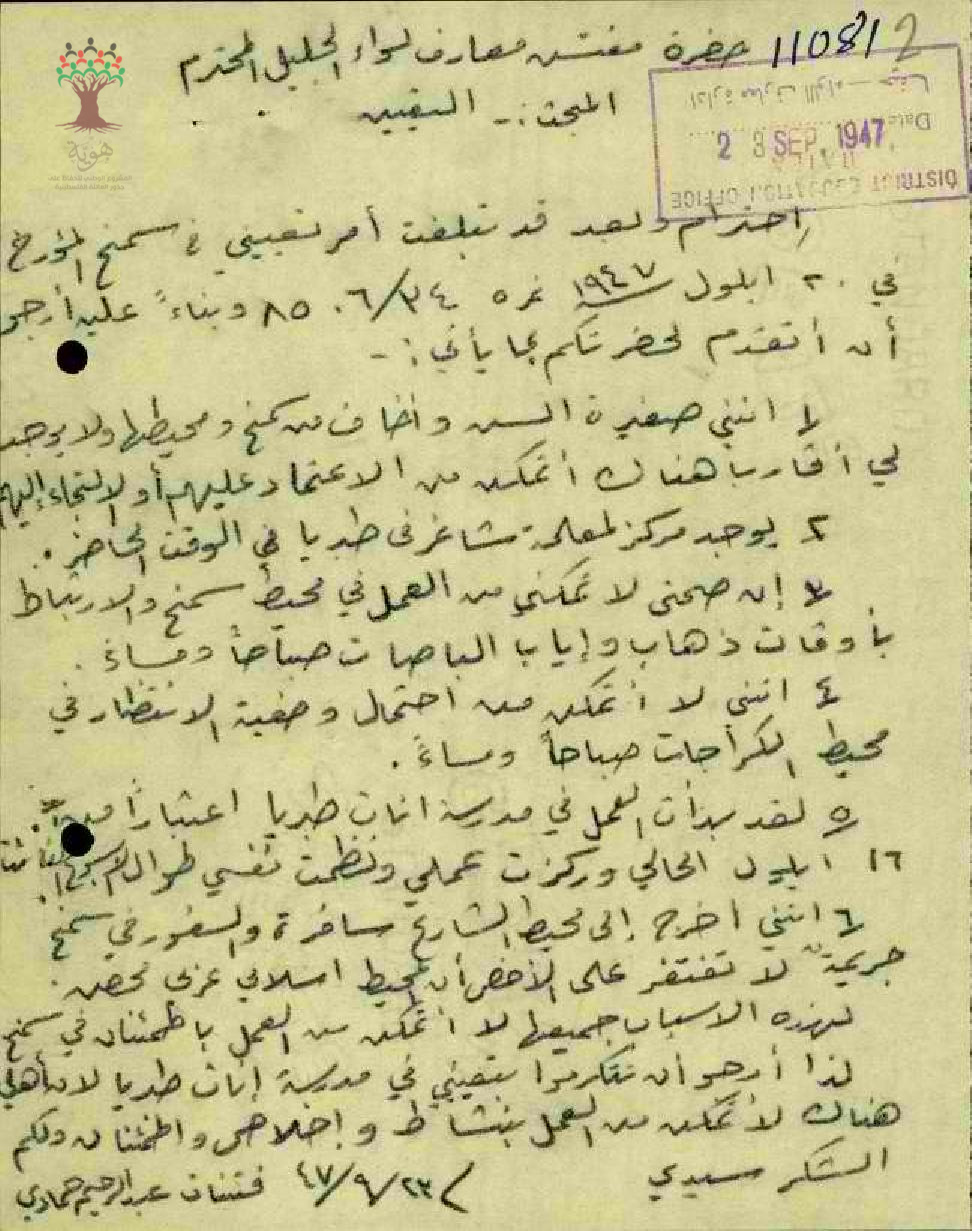 2
11081
حضرة مفتش معارف لواء الجليل المحترم
المبحث :ـ التعيين
ادارة معارف اللواء — حيفا
Date
2 3 SEP 1947
DISTRICT EDUCATION OFFICE
هوية
إحترام وبعد قد تبلغت أمر تعييني في سمخ المؤرخ
في ٢٠ ايلول ١٩٤٧ نمره ٨٥٠٦/٣٤ وبناءً عليه أرجو
أن أتقدم لحضرتكم بما يأتي :ـ
١ انني صغيرة السن وأخاف من سمخ ومحيطها ولا يوجد
لي أقارب هناك أتمكن من الاعتماد عليهم أو الالتجاء إليهم
٢ يوجد مركز لمعلمة شاغر في طبريا في الوقت الحاضر .
٣ إن صحتي لا تمكني من العمل في محيط سمخ والارتباط
بأوقات ذهاب وإياب الباصات صباحاً ومساءً .
٤ انني لا أتمكن من احتمال وضعية الانتظار في
محيط الكراجات صباحاً ومساءً .
٥ لقد بدأت العمل في مدرسة اناث طبريا اعتباراً من
١٦ ايلول الحالي وركزت عملي ونظمت نفسي طوال الأسبوع
٦ انني أخرج إلى محيط الشارع سافرة والسفور في سمخ
جريمة لا تغتفر على الأخص أن المحيط اسلامي عربي محض .
لهذه الاسباب جميعها لا أتمكن من العمل باطمئنان في سمخ
لذا أرجو أن تتكرموا بتعييني في مدرسة إناث طبريا لان أهلي
هناك لأتمكن من العمل بنشاط وإخلاص واطمئنان ولكم
الشكر سيدي
٤٧/٩/٢٣ فتنات عبد الرحيم حمادي